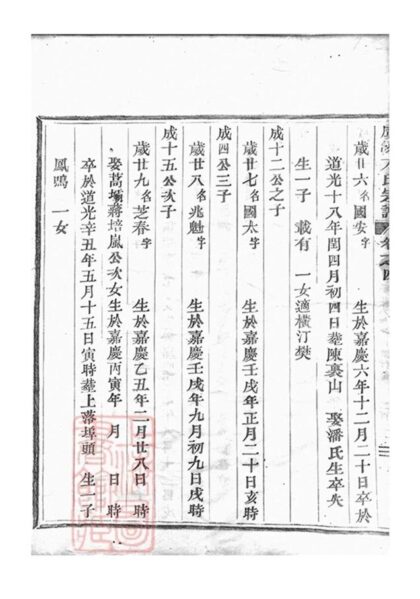 氏宗譜 卷之四
歲廿六 名國安字 生於嘉慶六年十二月二十日卒於
道光十八年閏四月初四日葬陳裏山 娶潘氏生卒失
生一子 載有 一女適橫汀樊
成十二公之子
歲廿七 名國太字 生於嘉慶壬戌年正月二十日亥時
成四公三子
歲廿八 名兆魁字 生於嘉慶壬戌年九月初九日戌時
成十五公次子
歲廿九 名芝春字 生於嘉慶乙丑年二月廿八日 時
娶蒿壩蔣培嵐公次女生於嘉慶丙寅年 月 日 時
卒於道光辛丑年五月十五日寅時葬上落埠頭 生一子
鳳鳴 一女